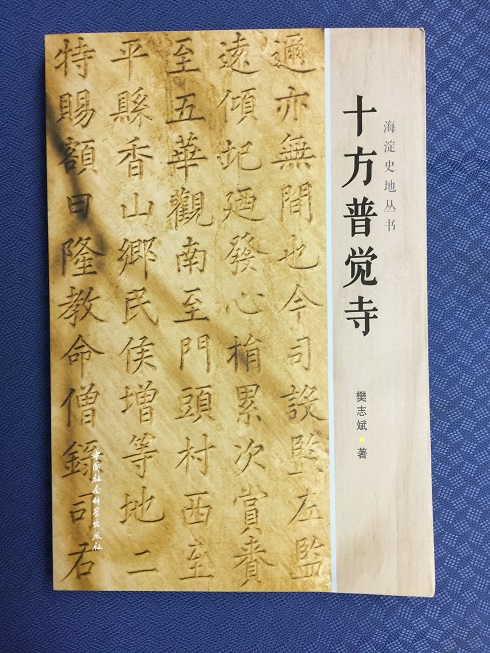 海淀史地丛书
十方普觉寺
樊志斌 著
邇亦無間也今司設監左監
遠傾圮廼發心捐累次賞賚
至五華觀南至門頭村西至
平縣香山鄉民侯增等地二
特賜額曰隆教命僧錄司右
中国社会科学出版社